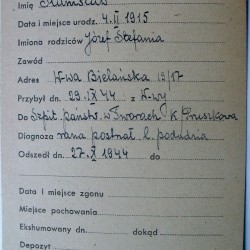 Imię Stanisław
Data i miejsce urodz. 4.II 1915
Imiona rodziców Józef Stefania
Zawód
Adres W-wa Bielańska 19/17
Przybył dn. 29.IX 44 z W-wy
Do Szpit. państw. w Tworach k. Pruszkowa
Diagnoza rana postrzał l. podudzia
Odszedł dn. 27.X 1944 do
Data i miejsce zgonu
Miejsce pochowania
Ekshumowany dn. dokąd
Depozyt